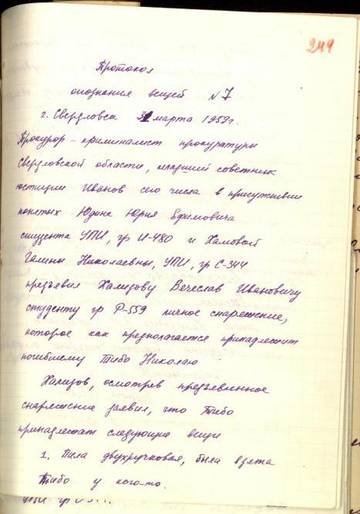 249
Протокол
опознания вещей № 7
г. Свердловск 31 марта 1959 г.
Прокурор-криминалист прокуратуры
Свердловской области, младший советник
юстиции Иванов сего числа в присутствии
понятых Юдина Юрия Ефимовича
студента УПИ, гр И-480 и Хамовой
Галины Николаевны, УПИ, гр С-344
предъявил Хализову Вечеслав Ивановичу
студенту гр Р-559 личное снаряжение,
которое как предполагается принадлежит
погибшему Тибо Николаю
Хализов, осмотрев предъявленное
снаряжение заявил, что Тибо
принадлежат следующие вещи
1. Пила двухручковая, была взята
Тибо у кого-то.